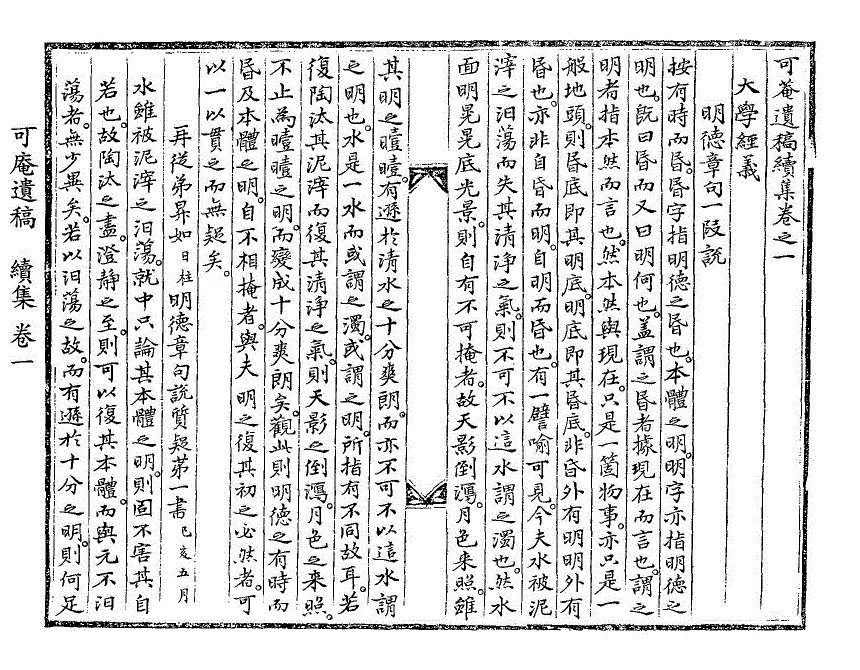 可菴遺稿續集卷之一
大學經義
明德章句一段說
按有時而昏。昏字指明德之昏也。本體之明。明字亦指明德之
明也。旣曰昏而又曰明何也。盖謂之昏者據現在而言也。謂之
明者指本然而言也。然本然與現在。只是一箇物事。亦只是一
般地頭。則昏底卽其明底。明底卽其昏底。非昏外有明。明外有
昏也。亦非自昏而明。自明而昏也。有一譬喩可見。今夫水被泥
滓之汨蕩而失其清淨之氣。則不可不以這水謂之濁也。然水
面明晃晃底光景。則自有不可掩者。故天影倒瀉。月色來照。雖
其明之曀曀。有遜於清水之十分爽朗。而亦不可不以這水謂
之明也。水是一水而或謂之濁。或謂之明。所指有不同故耳。若
復陶汰其泥滓而復其清淨之氣。則天影之倒瀉。月色之來照。
不止為曀曀之明。而變成十分爽朗矣。觀此則明德之有時而
昏及本體之明。自不相掩者。與夫明之復其初之必然者。可
以一以貫之而無疑矣。
再從弟昇如日柱明德章句說質疑第一書己亥五月
水雖被泥滓之汨蕩。就中只論其本體之明。則固不害其自
若也。故陶汰之盡。澄靜之至。則可以復其本體。而與元不汨
蕩者。無少異矣。若以汨蕩之故。而有遜於十分之明。則何足
可庵遺稿 續集 卷一